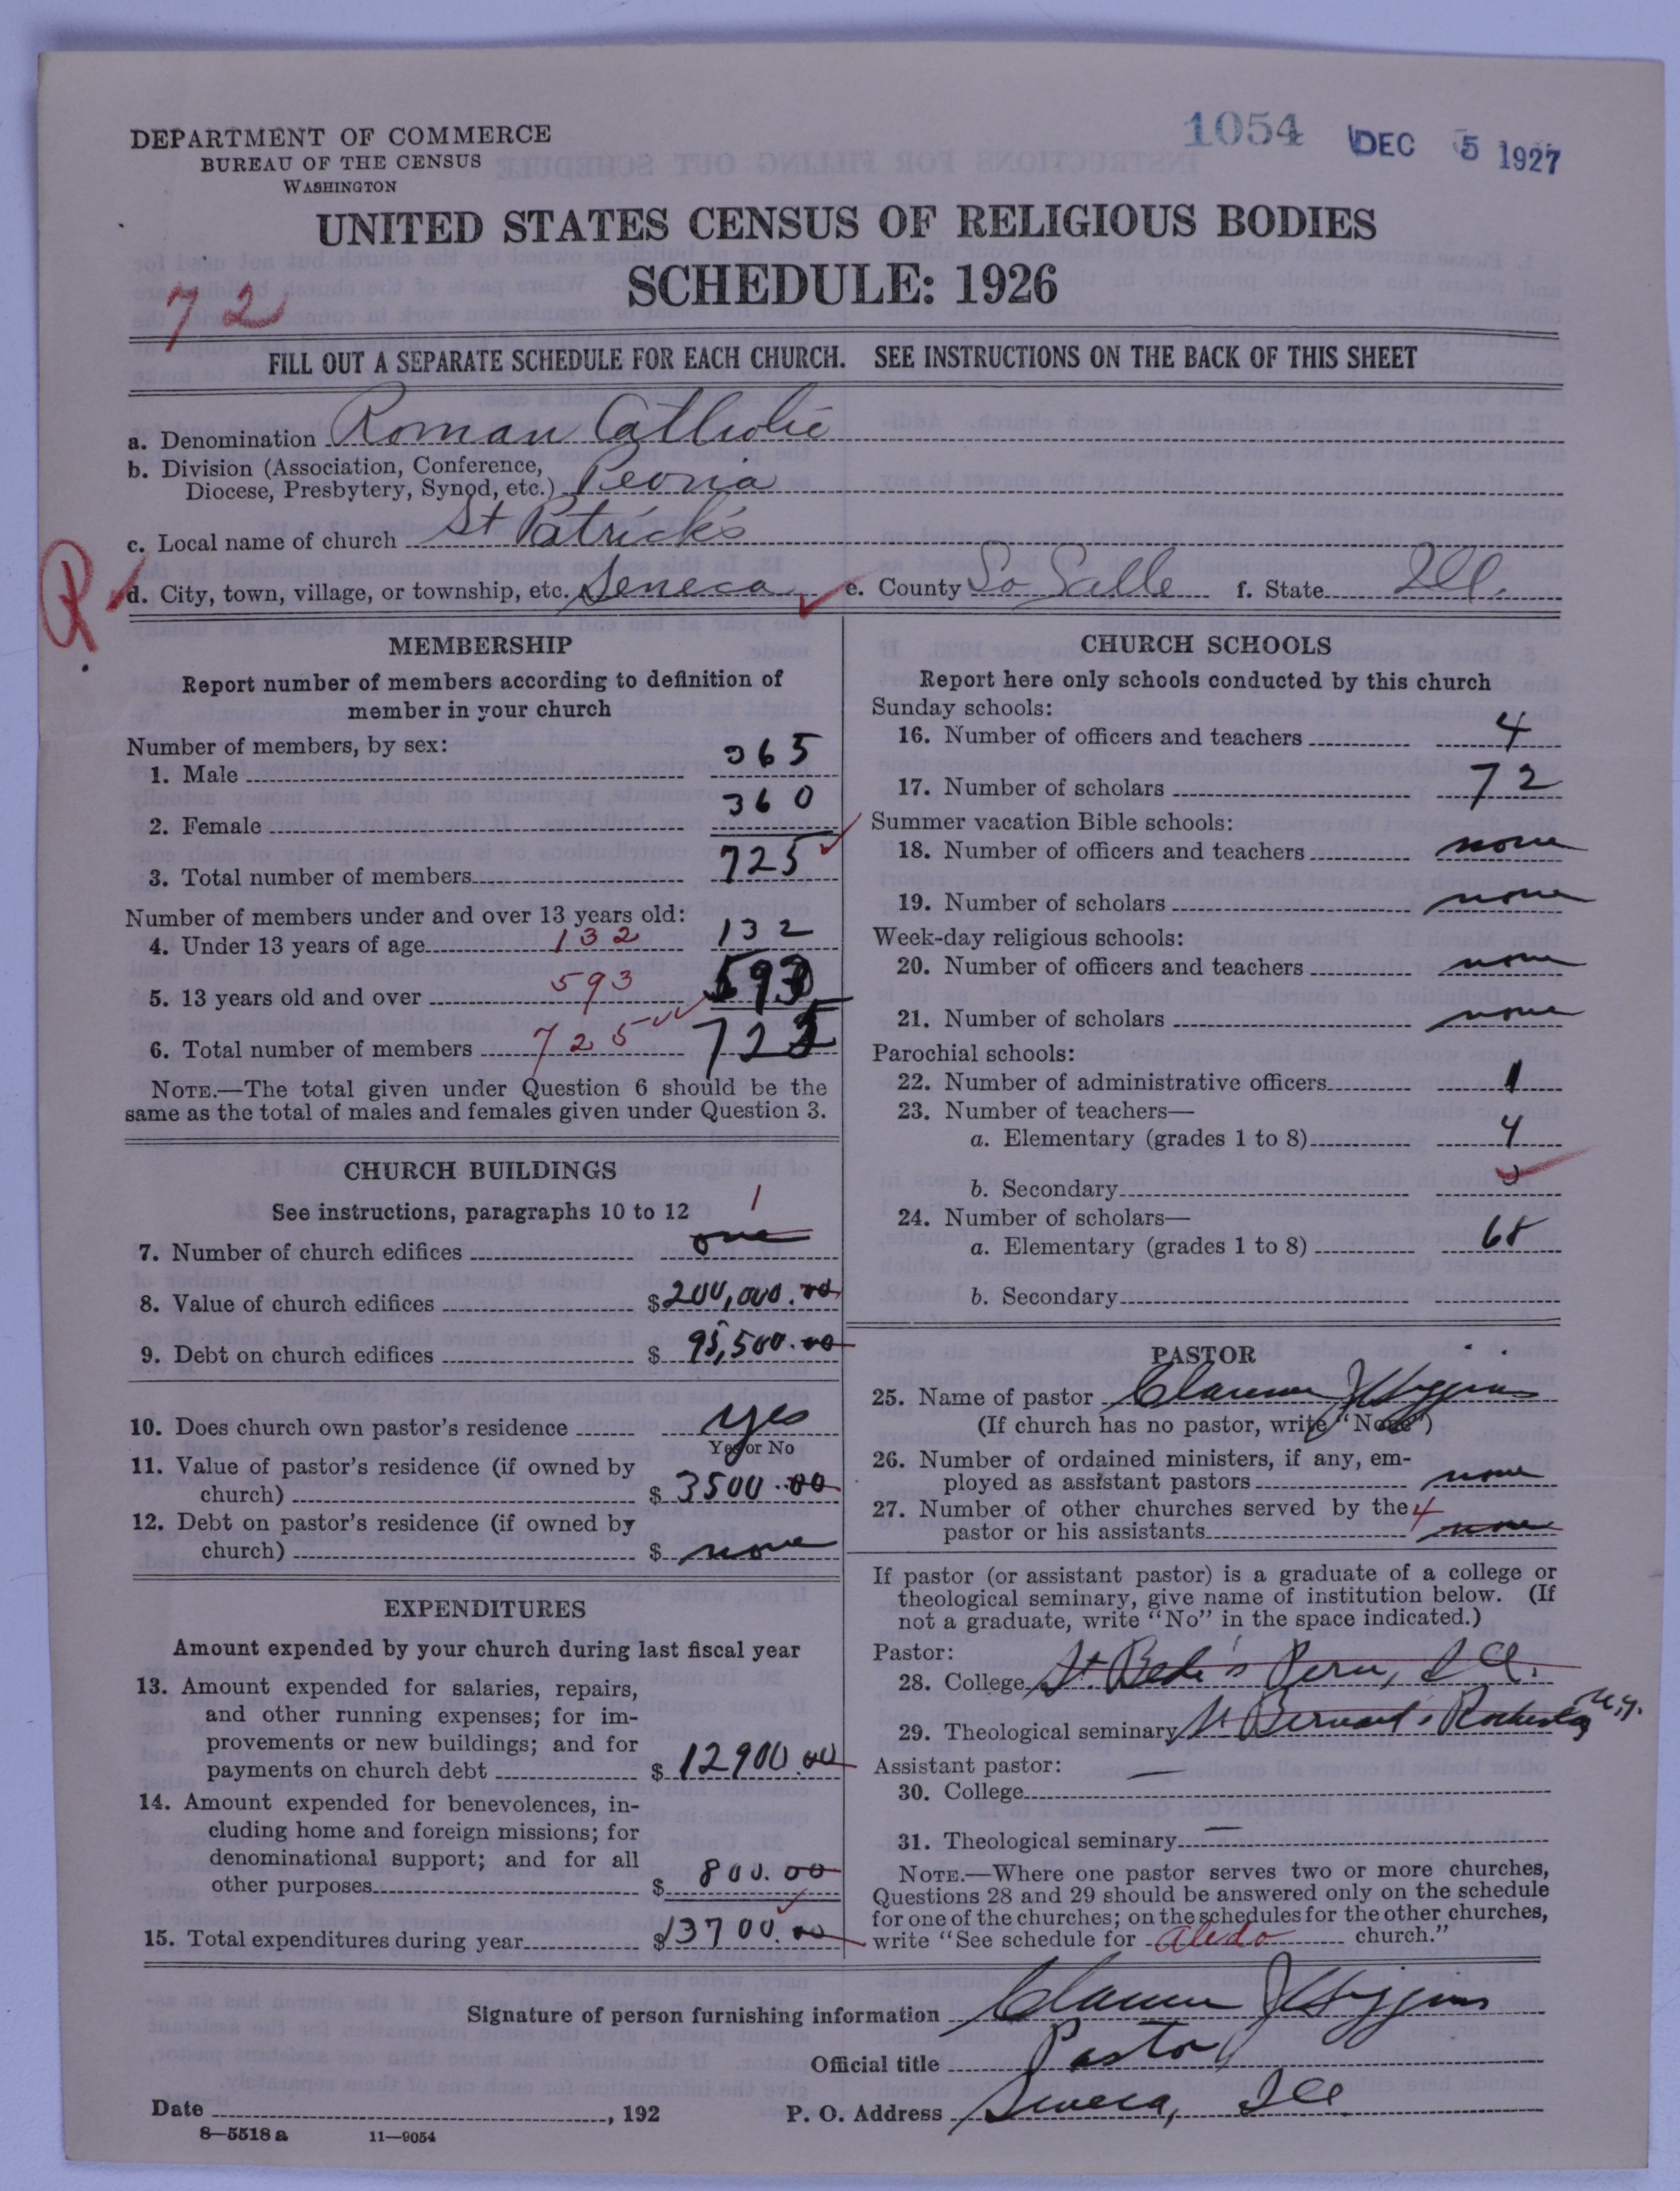 DEPARTMENT OF COMMERCE
BUREAU OF THE CENSUS
WASHINGTON
1054 DEC 5 1927
UNITED STATES CENSUS OF RELIGIOUS BODIES
SCHEDULE: 1926
72
FILL OUT A SEPARATE SCHEDULE FOR EACH CHURCH. SEE INSTRUCTIONS ON THE BACK OF THIS SHEET
a. Denomination Roman Catholic
b. Division (Association, Conference,
Diocese, Presbytery, Synod, etc.) Peoria
c. Local name of church St Patrick's
d. City, town, village, or township, etc. Seneca e. County La Salle f. State Ill.
MEMBERSHIP
Report number of members according to definition of
member in your church
Number of members, by sex:
1. Male 365
2. Female 360
3. Total number of members 725
Number of members under and over 13 years old:
4. Under 13 years of age 132 132
5. 13 years old and over 593 593
6. Total number of members 725 725
NOTE.—The total given under Question 6 should be the
same as the total of males and females given under Question 3.
CHURCH BUILDINGS
See instructions, paragraphs 10 to 12 1
7. Number of church edifices one
8. Value of church edifices $200,000.00
9. Debt on church edifices $ 95,500.00
10. Does church own pastor's residence yes
Yes or No
11. Value of pastor's residence (if owned by
church) $ 3500.00
12. Debt on pastor's residence (if owned by
church) $ none
EXPENDITURES
Amount expended by your church during last fiscal year
13. Amount expended for salaries, repairs,
and other running expenses; for im-
provements or new buildings; and for
payments on church debt $ 12900.00
14. Amount expended for benevolences, in-
cluding home and foreign missions; for
denominational support; and for all
other purposes $ 800.00
15. Total expenditures during year $13700.00
CHURCH SCHOOLS
Report here only schools conducted by this church
Sunday schools:
16. Number of officers and teachers 4
17. Number of scholars 72
Summer vacation Bible schools:
18. Number of officers and teachers none
19. Number of scholars none
Week-day religious schools:
20. Number of officers and teachers none
21. Number of scholars none
Parochial schools:
22. Number of administrative officers 1
23. Number of teachers—
a. Elementary (grades 1 to 8) 4
b. Secondary
24. Number of scholars—
a. Elementary (grades 1 to 8)
b. Secondary
PASTOR
25. Name of pastor Clarence J Higgins
(If church has no pastor, write "None")
26. Number of ordained ministers, if any, em-
ployed as assistant pastors none
27. Number of other churches served by the 4
pastor or his assistants none
If pastor (or assistant pastor) is a graduate of a college or
theological seminary, give name of institution below. (If
not a graduate, write "No" in the space indicated.)
Pastor:
28. College St. Bede's Peru, Ill.
29. Theological seminary St Bernard's Rochester N.Y.
Assistant pastor:
30. College —
31. Theological seminary —
NOTE.—Where one pastor serves two or more churches,
Questions 28 and 29 should be answered only on the schedule
for one of the churches; on the schedules for the other churches,
write "See schedule for Aledo church."
Signature of person furnishing information Clarence J Higgins
Official title Pastor
Date , 192 P. O. Address Seneca, Ill.
8—5518 a 11—9054